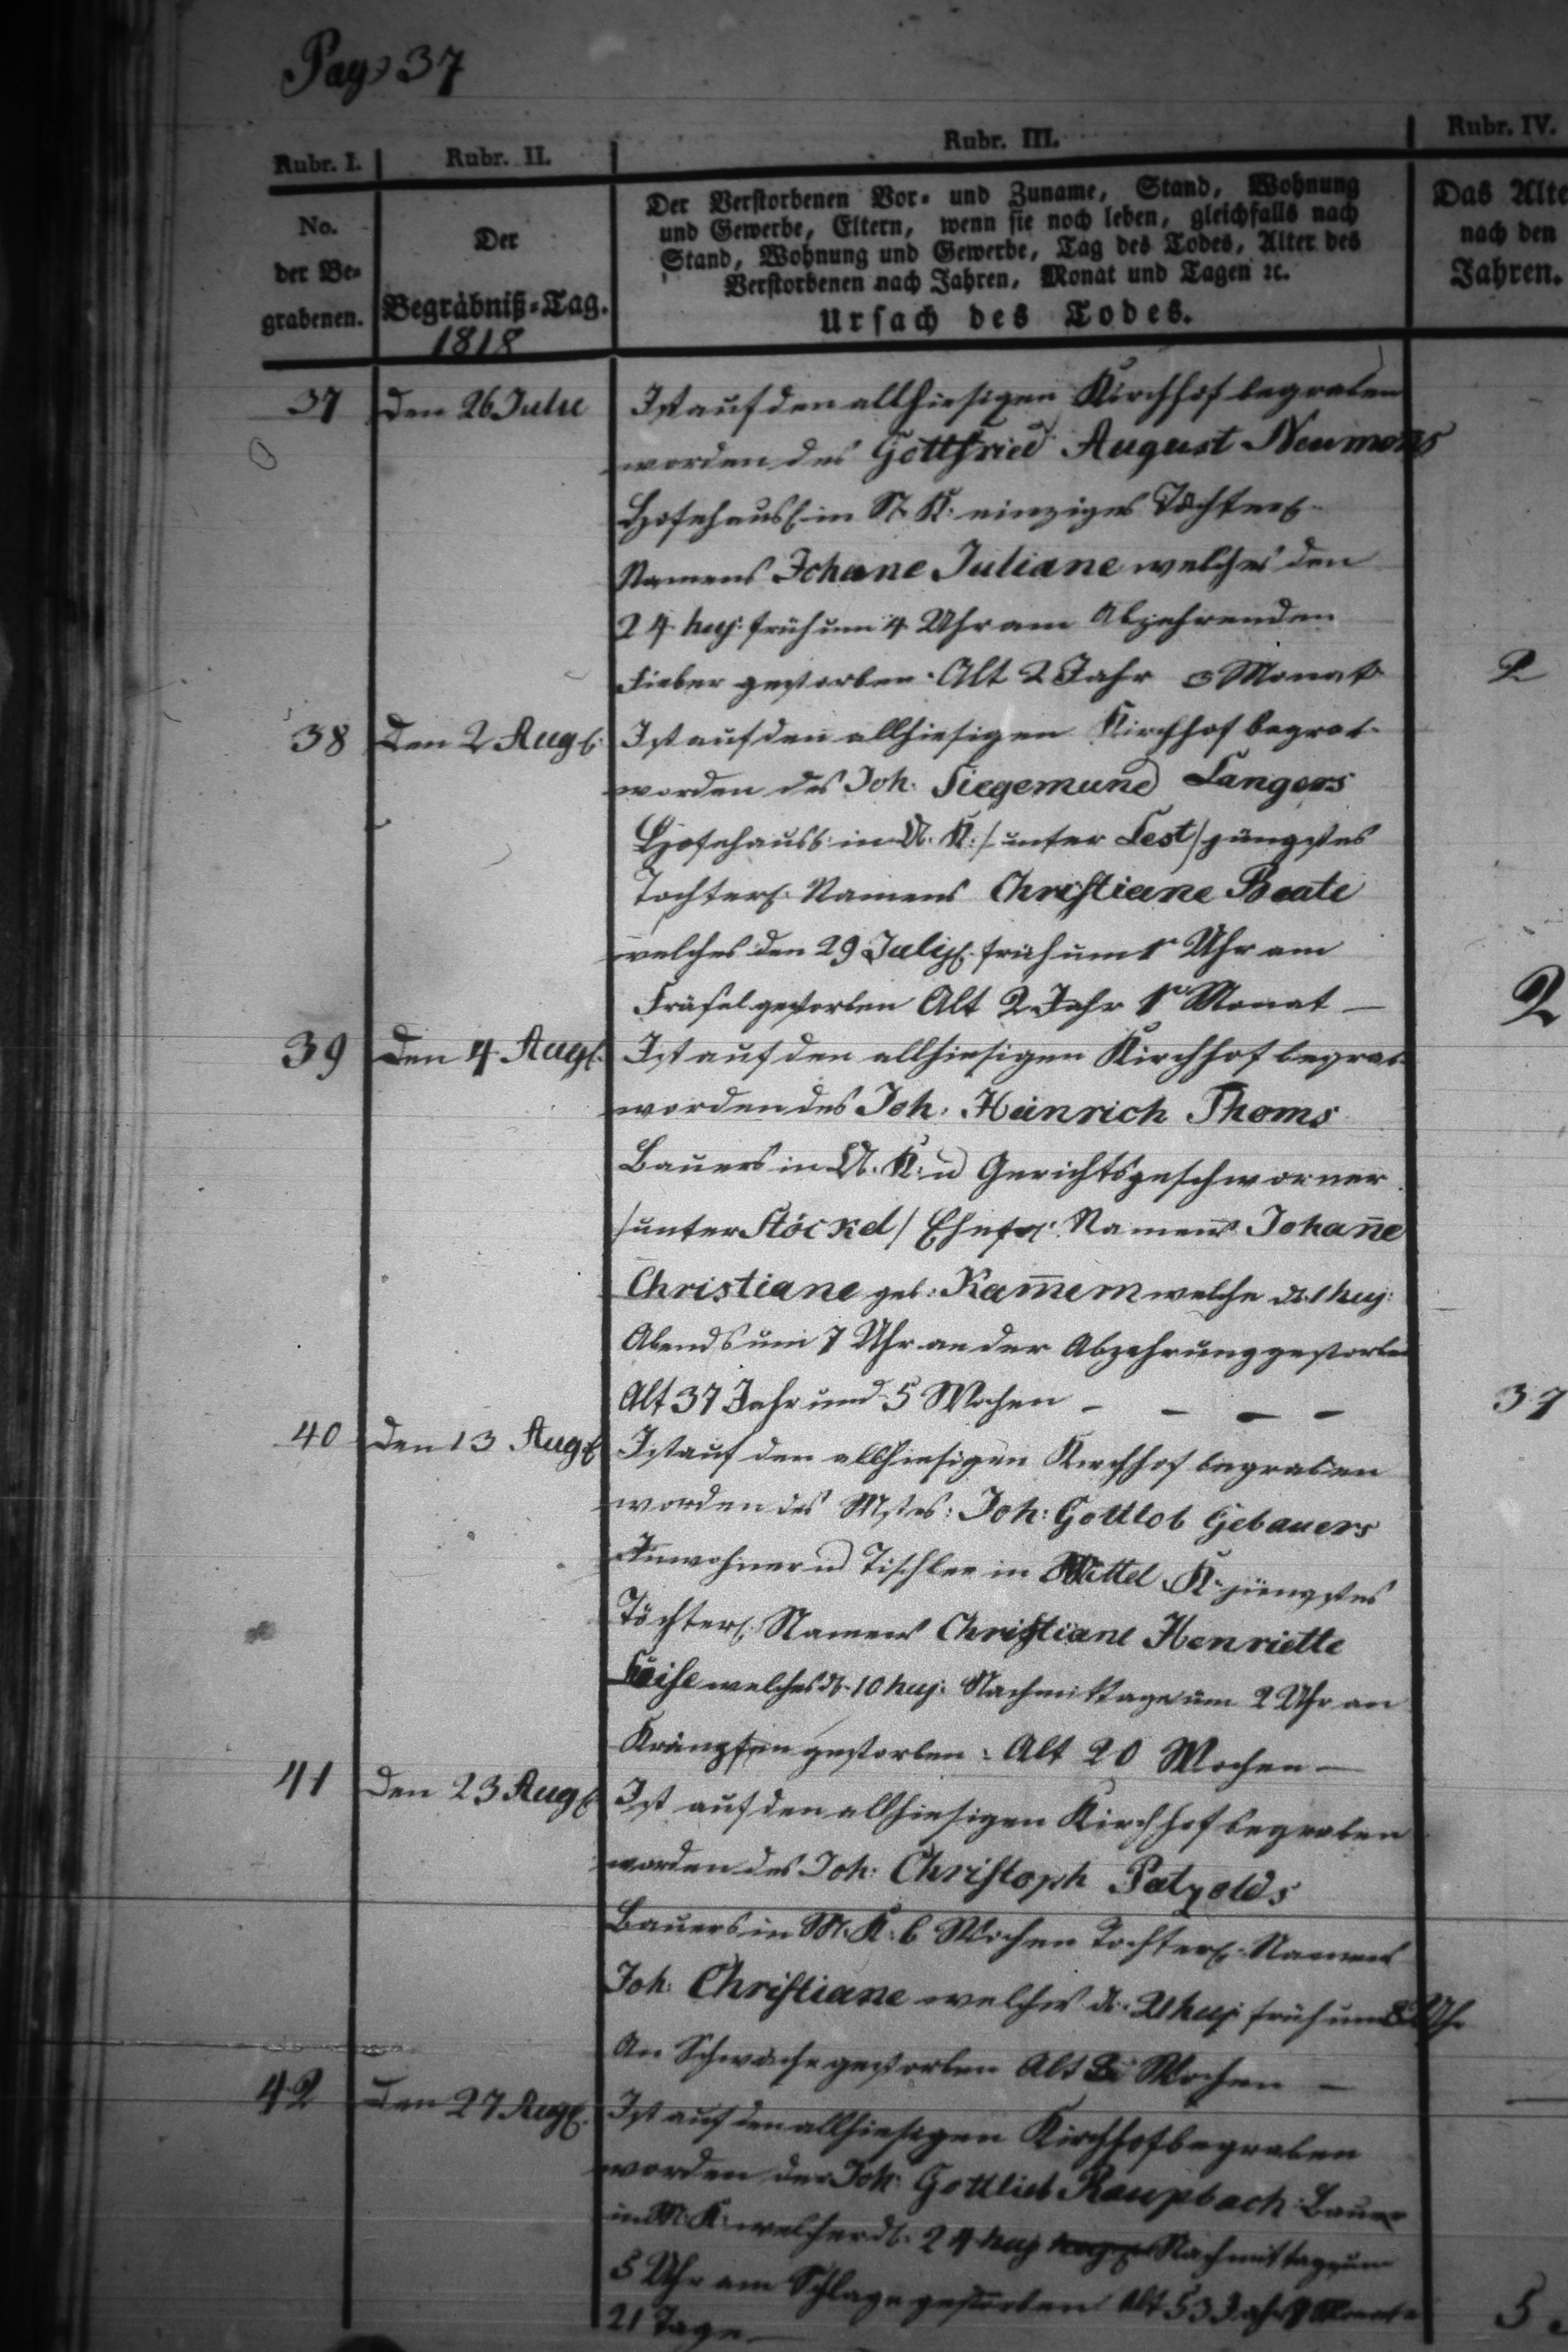 Pag. 37
Rubr. I. Rubr. II. Rubr. III. Rubr. IV.
No.
der Be-
grabenen.
Der
Begräbniß-Tag.
1818
Der Verstorbenen Vor- und Zuname, Stand, Wohnung
und Gewerbe, Eltern, wenn sie noch leben, gleichfalls nach
Stand, Wohnung und Gewerbe, Tag des Todes, Alter des
Verstorbenen nach Jahren, Monat und Tagen ꝛc.
Ursach des Todes.
Das Alte
nach den
Jahren.
37 Den 26 Julie Ist auf den allhiesigen Kirchhof begraben
worden des Gottfried August Neumans
Hofehausl. in N. K. einziges Töchterl.
Namens Johane Juliane welches den
24 huj: früh um 4 Uhr am Abzehrenden
Fieber gestorben. Alt 2 Jahr 3 Monat 2
38 Den 2 Augl: Ist auf den allhiesigen Kirchhof begrab
worden des Joh. Siegemund Langers
Hofehausl. in N. K: / unter Lest / jüngstes
Tochterl. Namens Christiane Beate
welches den 29 Julyl. früh um 1 Uhr am
Fräsel gestorben Alt 2 Jahr 1 Monat — 2
39 Den 4 Augl. Ist auf den allhiesigen Kirchhof begrab
worden des Joh. Heinrich Thoms
Bauers in N. K. u Gerichtsgeschworner
/ unter Stöckel / Ehefr. Namens Johan̄e
Christiane geb: Kam̄ern welche d. 1 huj:
Abends um 7 Uhr an der Abzehrung gestorben
Alt 37 Jahr und 5 Wochen — — — — 37
40 Den 13 Augl Ist auf den allhiesigen Kirchhof begraben
worden des Mstrs: Joh: Gottlob Gebauers
Inwohner u Tischler in Mittel K. jüngstes
Töchterl. Namens Christiane Henriette
Leise welches d. 10 huj. Nachmittage um 2 Uhr an
Krämpfen gestorben: Alt 20 Wochen —
41 Den 23 Augl Ist auf den allhiesigen Kirchhof begraben
worden des Joh: Christoph Patzolds
Bauers in M. K. 6 Wochen Tochterl. Namens
Joh: Christiane welches d. 21 huj. früh um 8 Uhr
An Schwäche gestorben Alt Wochen —
42 Den 27 Augl. Ist auf den allhiesigen Kirchhof begraben
worden der Joh. Gottlieb Raupbach Bauer
in M. K. welcher d. 24 huj Nachmittag um
5 Uhr am Schlage gestorben Alt 53 Jahr Monate 5
21 Tage —